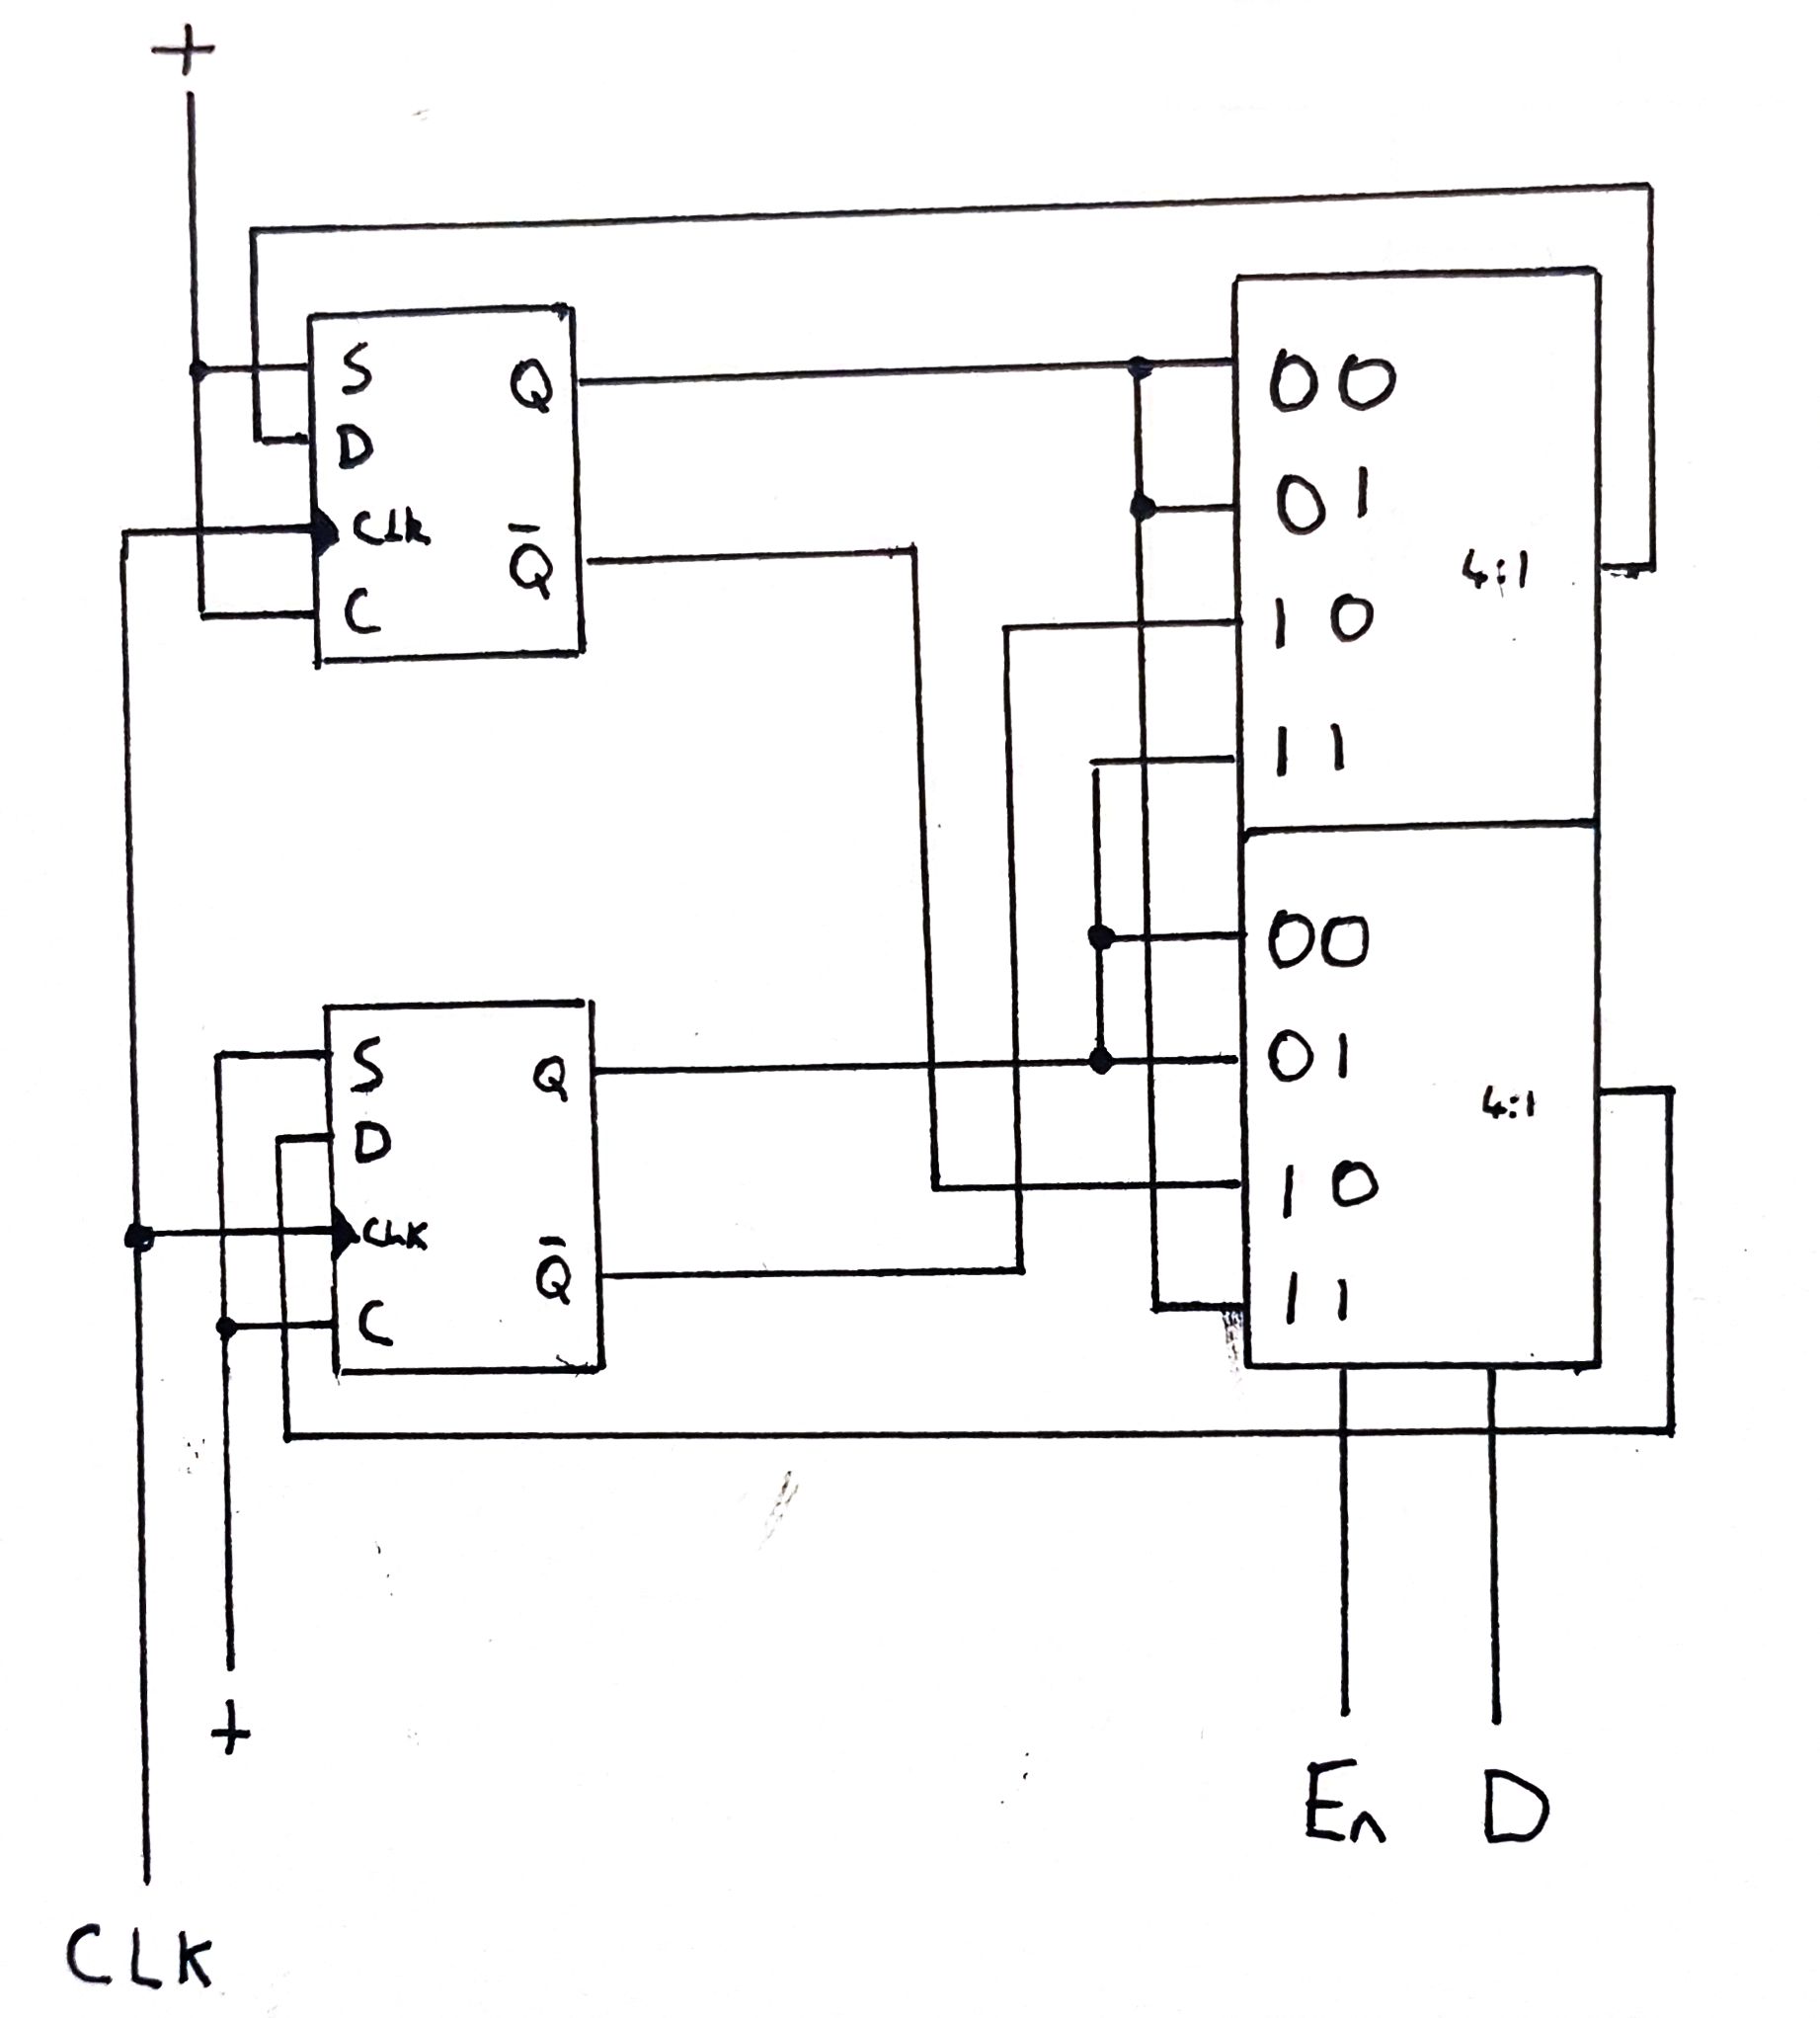 +
S
D
Clk
C
Q
Q̅
00
01
10
11
4:1
S
D
CLK
C
Q
Q̅
00
01
10
11
4:1
+
En
D
CLK